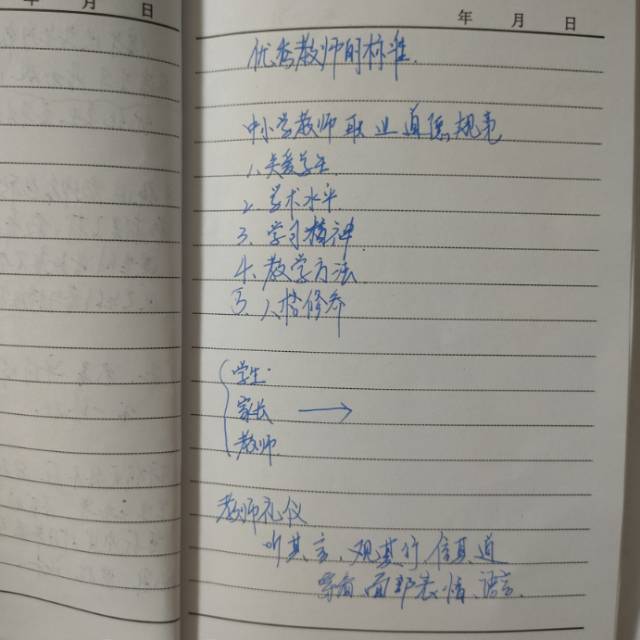 年 月 日
年 月 日
优秀教师的标准.
中小学教师职业道德规范
1、关爱学生.
2、学术水平
3、学习精神.
4、教学方法.
5、人格修养
学生.
家长 →
教师.
教师礼仪
听其言、观其行、信其道
穿着、面部表情、语言.